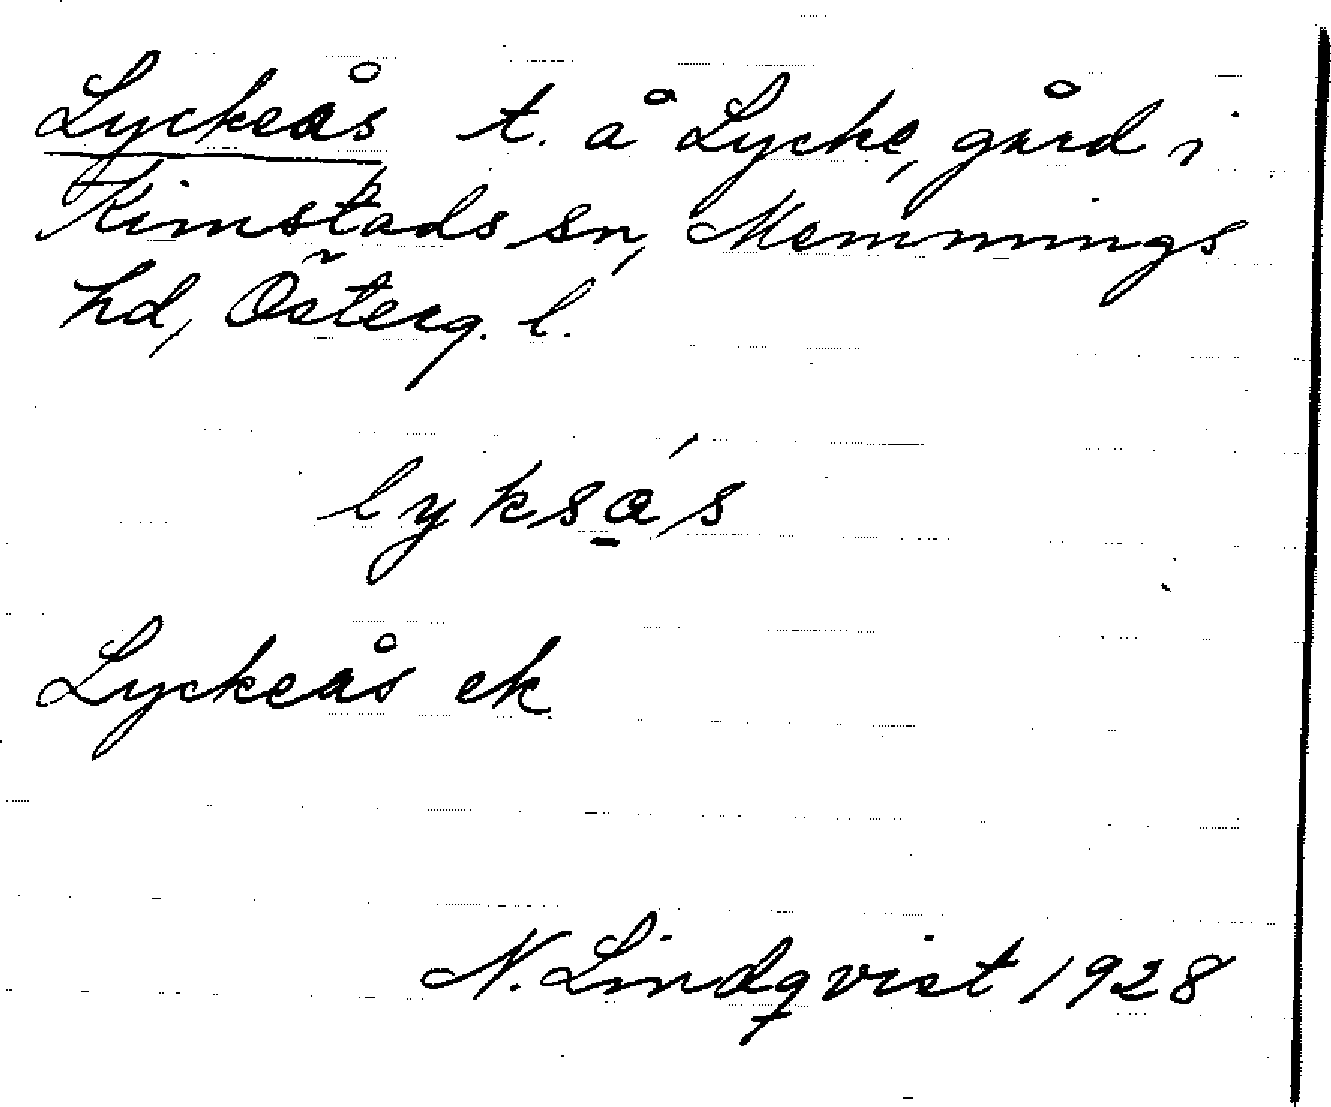 Lyckeås t. å Lycke, gård i
Kimstads sn, Memmings
hd, Österg. l.
lyksa̱ʹs
Lyckeås ek
N. Lindqvist 1928